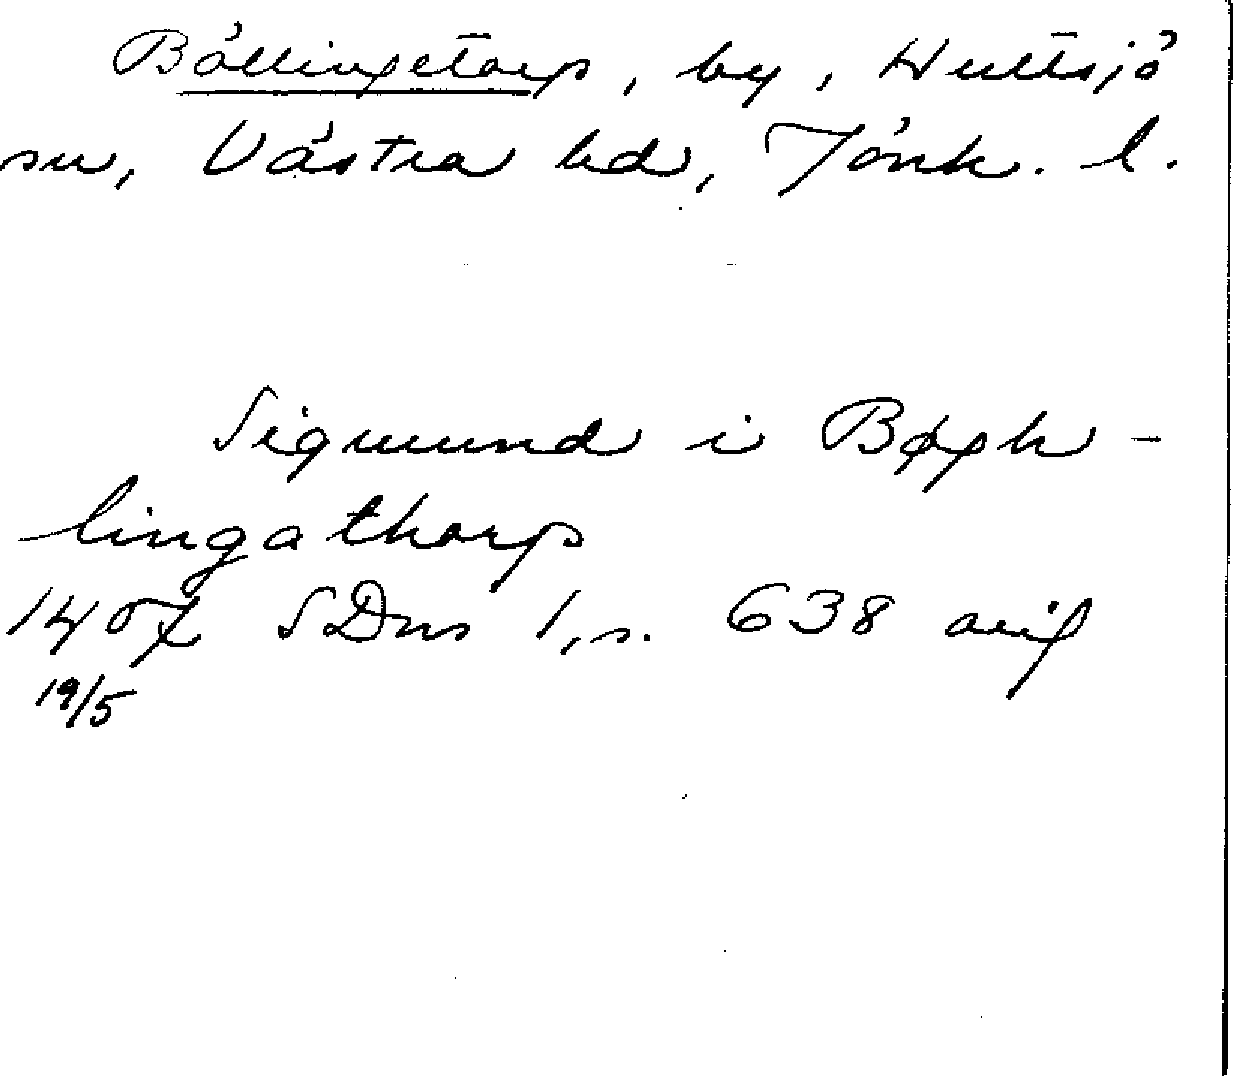 Böllingetorp, by, Hultsjö
sn, Västra hd, Jönk. l.
Sigmund i Bøgh-
lingathorp
1407 SDns 1, s. 638 avs
19/5